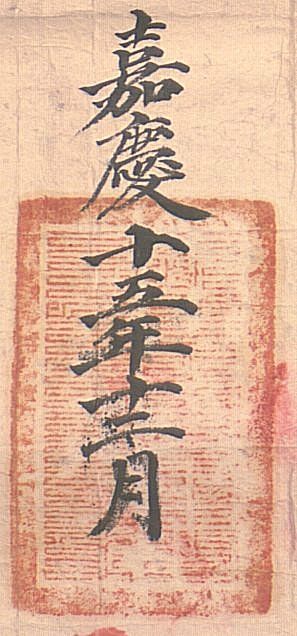 嘉慶十五年十二月